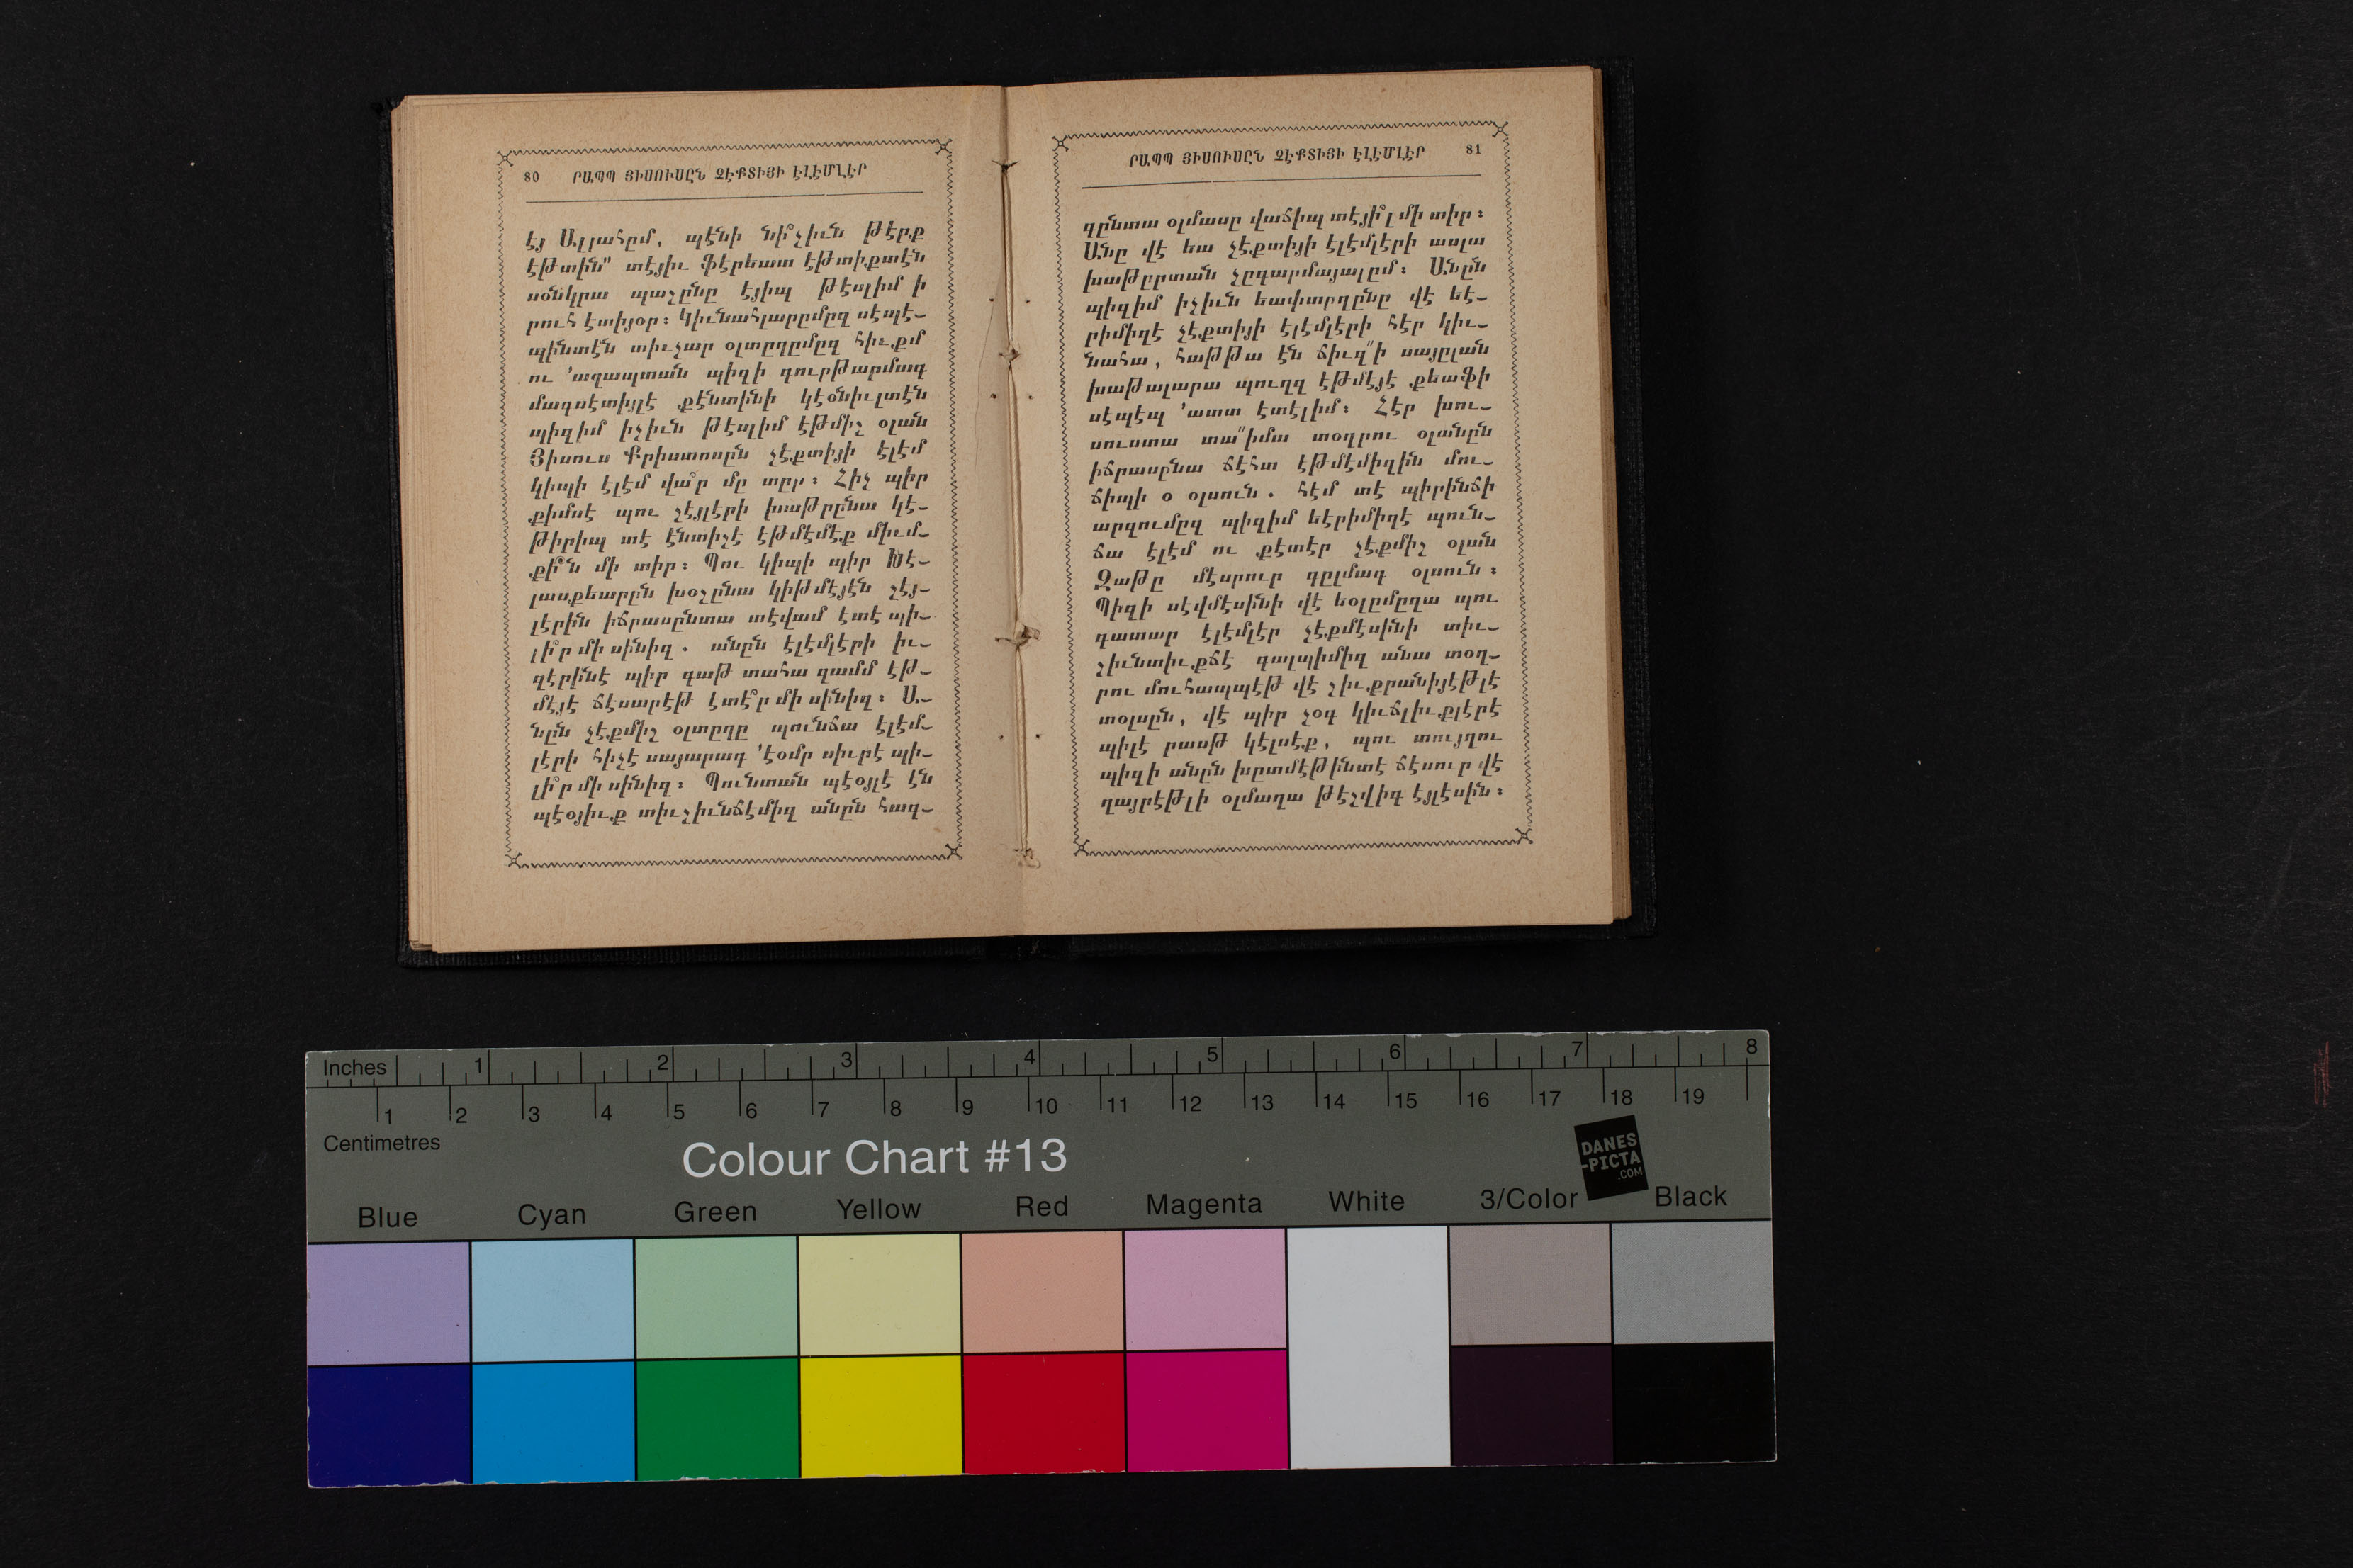 80 ՐԱՊՊ ՅԻՍՈՒՍԸՆ ՉԷՔՏԻՅԻ ԷԼԷՄԼԷՐ
էյ Ալլահըմ, պէնի նի՞չիւն թէրք
էթտին" տէյիւ ֆէրեատ էթտիքտէն
սօնկրա պաշընը էյիպ թէսլիմ ի
րուհ էտիյօր։ Կիւնահլարըմըզ սէպէ-
պինտէն տիւչար օլտըղըմըզ հիւքմ
ու ՚ազապտան պիզի գուրթարմագ
մագսէտիյլէ քէնտինի կէօնիւլտէն
պիզիմ իչիւն թէսլիմ էթմիշ օլան
Յիսուս Քրիստոսըն չէքտիյի էլէմ
կիպի էլէմ վա՞ր մը տըր։ Հիչ պիր
քիմսէ պու շէյլէրի խաթըրընա կէ-
թիրիպ տէ էնտիշէ էթմէմէք միւմ-
քի՞ն մի տիր։ Պու կիպի պիր Խէ-
լասքեարըն խօշընա կիթմէյէն շէյ-
լէրին իճրասընտա տէվամ էտէ պի-
լի՞ր մի սինիզ. անըն էլէմլէրի իւ-
զէրինէ պիր գաթ տահա զամմ էթ-
մէյէ ճէսարէթ էտէ՞ր մի սինիզ։ Ա-
նըն չէքմիշ օլտըղը պունճա էլէմ-
լէրի հիչէ սայարագ ՚էօմր սիւրէ պի-
լի՞ր մի սինիզ։ Պունտան պէօյլէ էն
պէօյիւք տիւշիւնճէմիզ անըն հագ-
ՐԱՊՊ ՅԻՍՈՒՍԸՆ ՉԷՔՏԻՅԻ ԷԼԷՄԼԷՐ 81
գընտա օլմասը վաճիպ տէյի՞լ մի տիր։
Անը վէ եա չէքտիյի էլէմլէրի ասլա
խաթըրտան չըգարմայալըմ։ Անըն
պիզիմ իչիւն եափտըղընը վէ եէ-
րիմիզէ չէքտիյի էլէմլէրի հէր կիւ-
նահա, հաթթա էն ճիւզ"ի սայըլան
խաթալարա պուղզ էթմէյէ քեաֆի
սէպէպ ՚ատտ էտէլիմ։ Հէր խու-
սուստա տա"իմա տօղրու օլանըն
իճրասընա ճէհտ էթմէմիզին մու-
ճիպի օ օլսուն. հէմ տէ պիրինճի
արզումըզ պիզիմ եէրիմիզէ պուն-
ճա էլէմ ու քէտէր չէքմիշ օլան
Զաթը մէսրուր գըլմագ օլսուն։
Պիզի սէվմէսինի վէ եօլըմըզա պու
գատար էլէմլէր չէքմէսինի տիւ-
շիւնտիւքճէ գալպիմիզ անա տօղ-
րու մուհապպէթ վէ շիւքրանիյէթլէ
տօլսըն, վէ պիր չօգ կիւճլիւքլէրէ
պիլէ րասթ կէլսէք, պու տույղու
պիզի անըն խըտմէթինտէ ճէսուր վէ
ղայրէթլի օլմաղա թէշվիգ էյլէսին։
Inches 1 2 3 4 5 6 7 8
1 2 3 4 5 6 7 8 9 10 11 12 13 14 15 16 17 18 19
Centimetres
Colour Chart #13
DANES
-PICTA
.COM
Blue Cyan Green Yellow Red Magenta White 3/Color Black